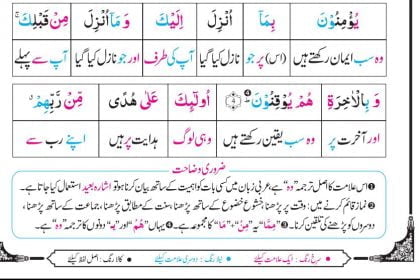 يُؤْمِنُوْنَ بِمَاۤ اُنْزِلَ اِلَيْكَ وَمَاۤ اُنْزِلَ مِنْ قَبْلِكَ
وہ سب ایمان رکھتے ہیں (اس) پر جو نازل کیا گیا آپ کی طرف اور جو نازل کیا گیا آپ سے پہلے
وَ بِالْاٰخِرَةِ هُمْ يُوْقِنُوْنَ اُولٰٓئِكَ عَلٰى هُدًى مِّنْ رَّبِّهِمْ
اور آخرت پر وہ سب یقین رکھتے ہیں وہی لوگ ہدایت پر ہیں اپنے رب سے
ضروری وضاحت
❶ اس علامت کا اصل ترجمہ "وہ" ہے، عربی زبان میں کسی بات کو اہمیت کے ساتھ بیان کرنا ہو تو اشارہ بعید استعمال کیا جاتا ہے۔
❷ نماز قائم کرنے میں: وقت پر پڑھنا، خشوع خضوع کے ساتھ پڑھنا، سنت کے مطابق پڑھنا، جماعت کے ساتھ پڑھنا،
دوسروں کو پڑھنے کی تلقین کرنا۔ ❸ "مِمَّا" یہ "مِنْ" ، "مَا" کا مجموعہ ہے۔ ❹ یہاں "هُمْ" اور "یہ" دونوں کا ترجمہ "وہ" ہے۔
سرخ رنگ: ایک علامت کیلئے نیلا رنگ: دوسری علامت کیلئے کالا رنگ: اصل لفظ کیلئے